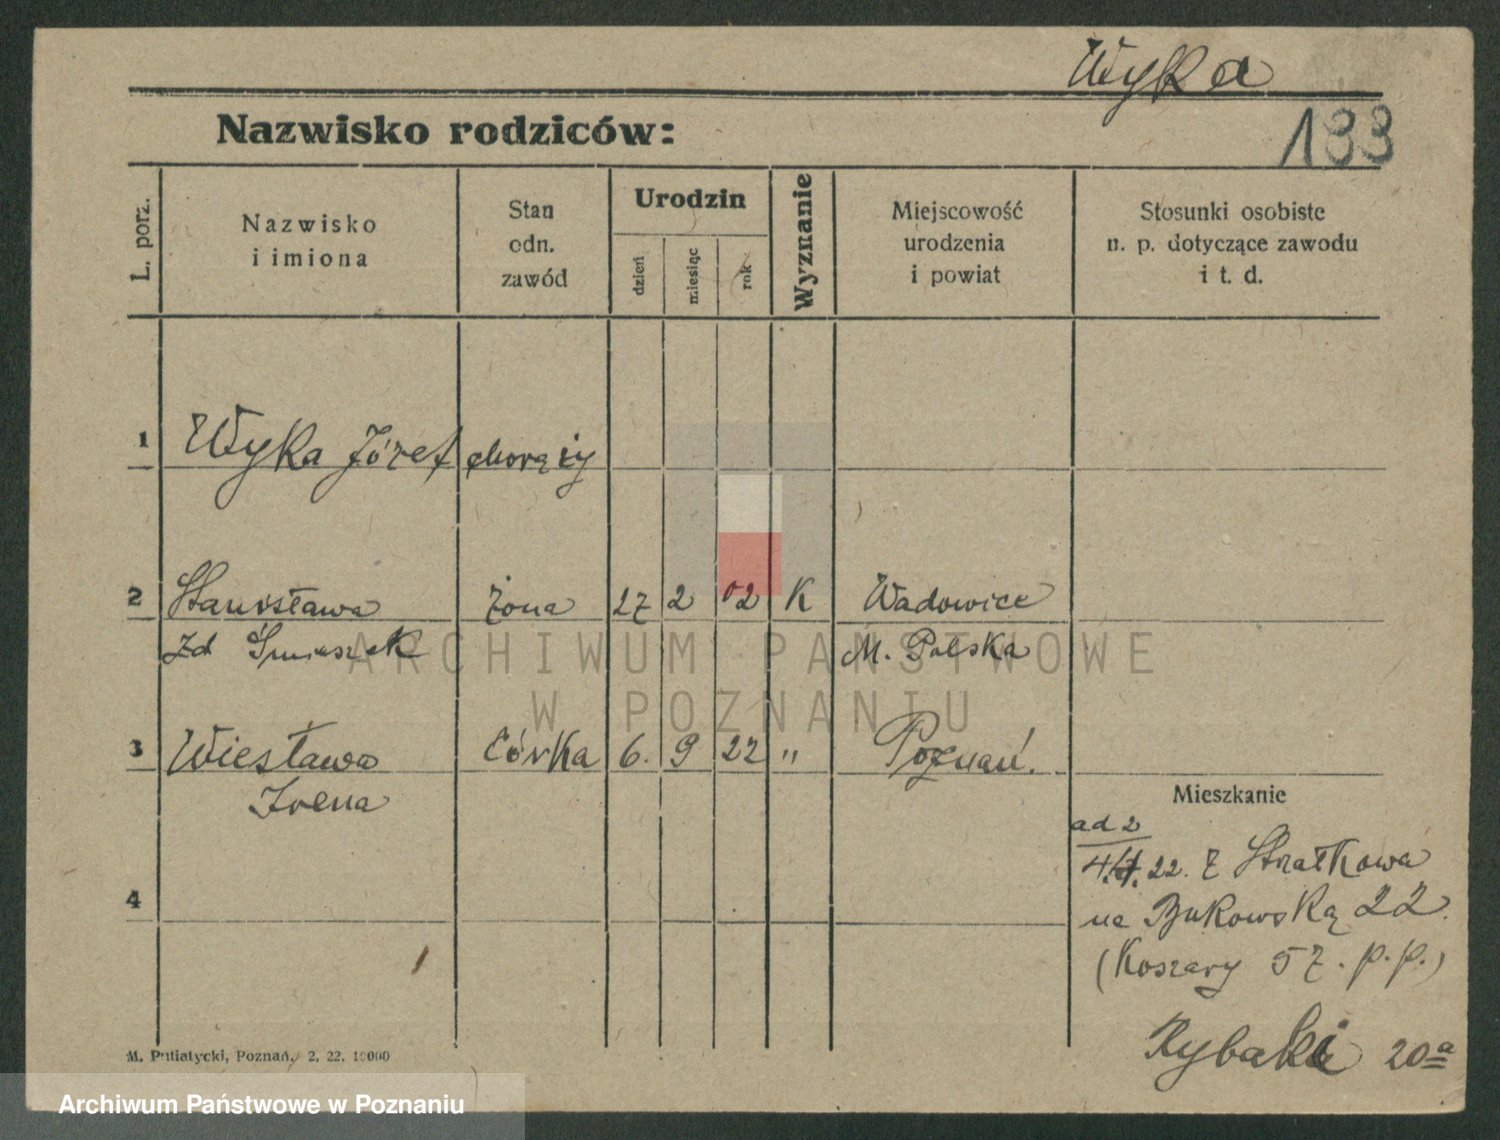 Wyka
Nazwisko rodziców:
133
L. porz.
Nazwisko
i imiona
Stan
odn.
zawód
Urodzin
dzień
miesiąc
rok
Wyznanie
Miejscowość
urodzenia
i powiat
Stosunki osobiste
n. p. dotyczące zawodu
i t. d.
1 Wyka Józef chorąży
2 Stanisława żona 27 2 02 K Wadowice
zd Śmieszek M. Polska
3 Wiesława córka 6. 9 22 " Poznań.
Irena
Mieszkanie
ad 2
22. z Strałkowa
4
na Bukowską 22.
(Koszary 57. p.p.)
Rybaki 20a
M. Putiatycki, Poznań. 2. 22. 10000
ARCHIWUM PAŃSTWOWE
W POZNANIU
Archiwum Państwowe w Poznaniu